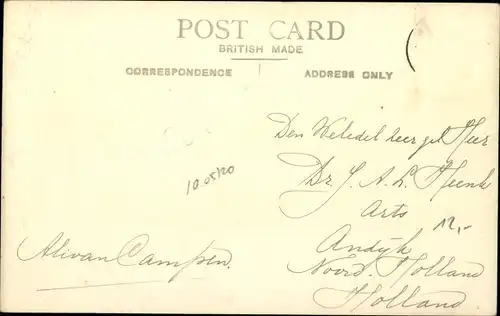 POST CARD
BRITISH MADE
CORRESPONDENCE
ADDRESS ONLY
Den Weledel zeer gel Heer
Dr. J. A. L. Heenk
Arts
12,-
Andijk
Noord. Holland
Holland
10 05/20
Ali van Campen.